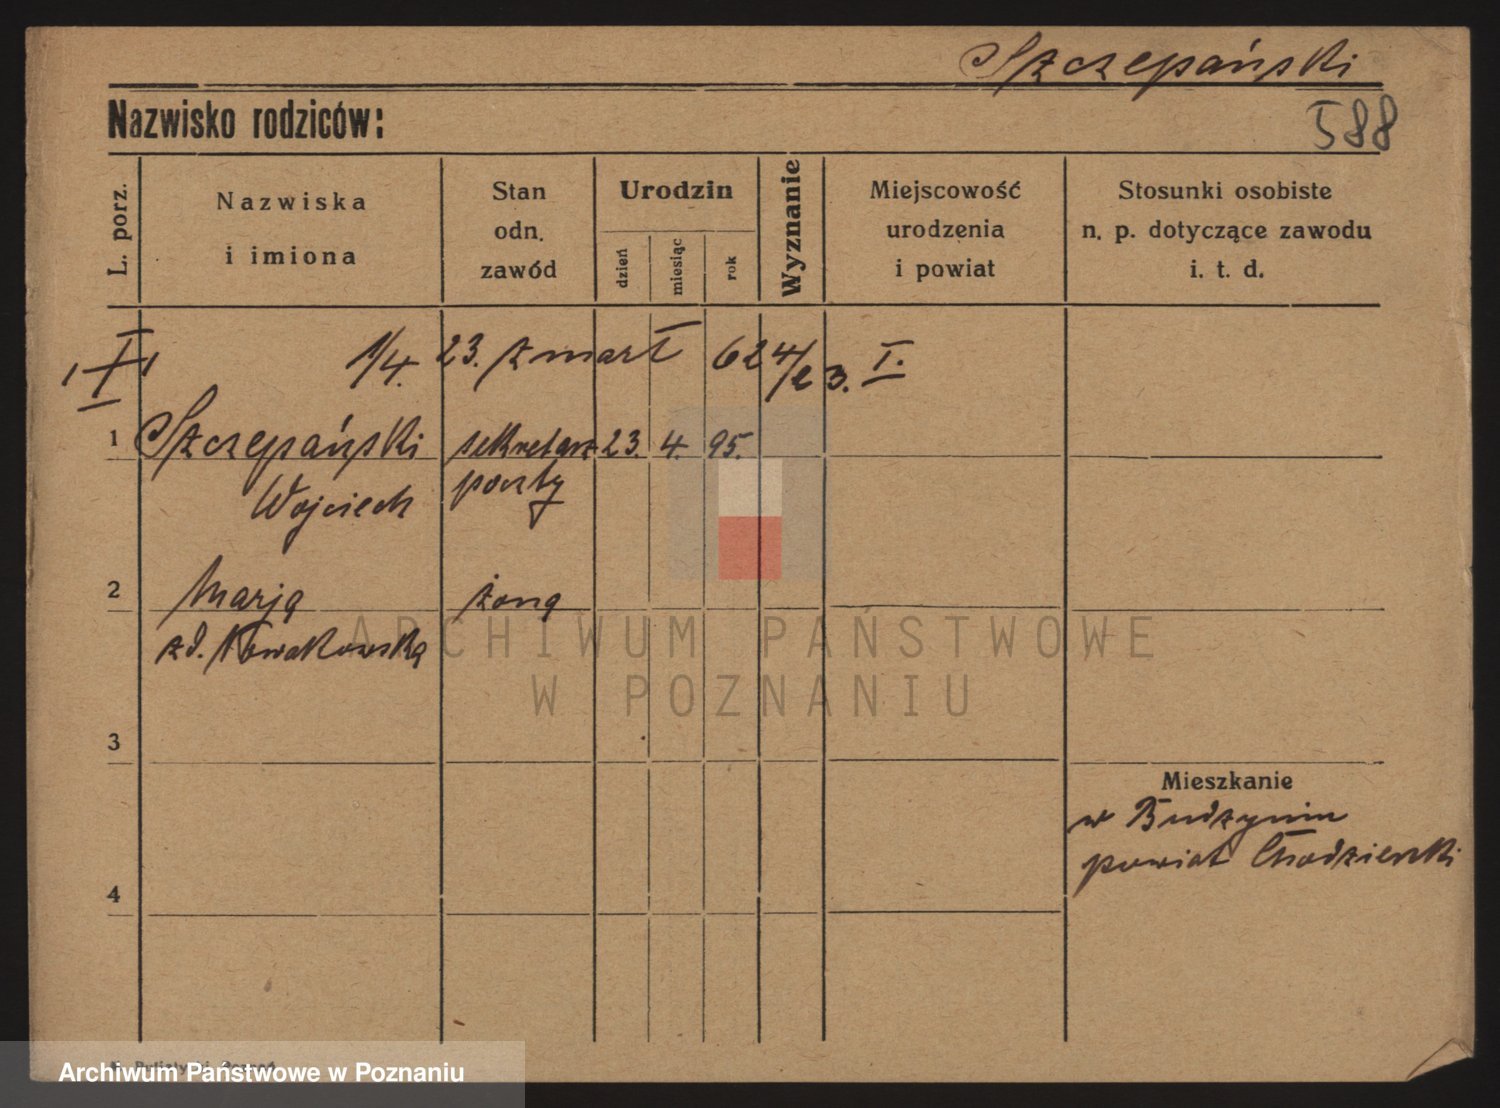 Szczepański
Nazwisko rodziców:
588
L. porz.
Nazwiska
i imiona
Stan
odn.
zawód
Urodzin
dzień
miesiąc
rok
Wyznanie
Miejscowość
urodzenia
i powiat
Stosunki osobiste
n. p. dotyczące zawodu
i. t. d.
I
1/4. 23. zmarł 624/e 3. I.
1 Szczepański sekretarz 23. 4. 95.
Wojciech poczty
2 Marja żona
zd. Nowakowska
ARCHIWUM PAŃSTWOWE
W POZNANIU
3
Mieszkanie
w Budzyniu
powiat Chodzieski
4
Archiwum Państwowe w Poznaniu